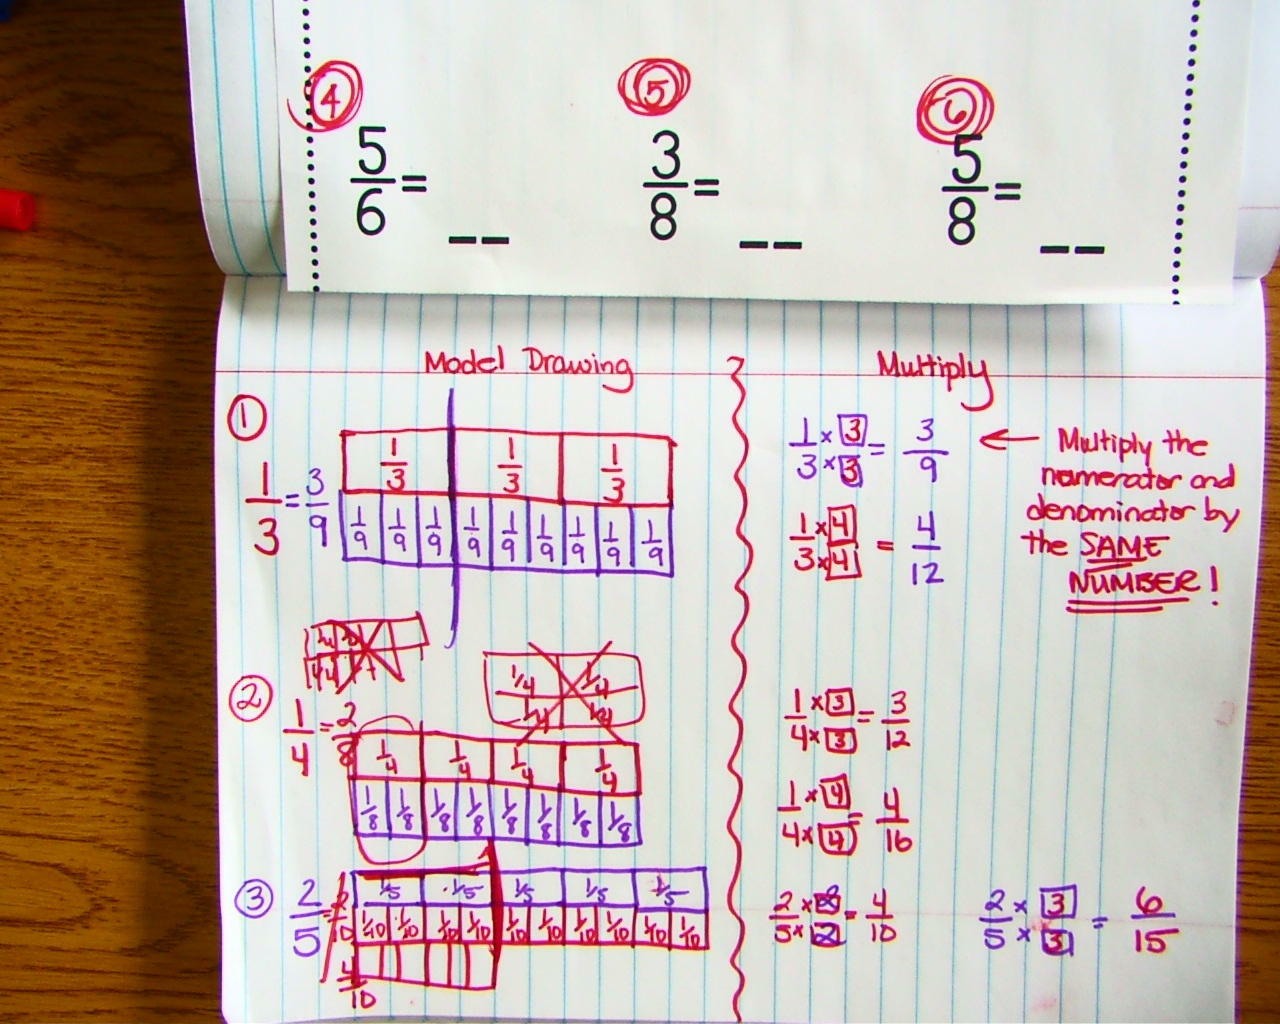 4 5 6
5/6 = __ 3/8 = __ 5/8 = __
Model Drawing Multiply
1
1/3 = 3/9
1/3 1/3 1/3
1/9 1/9 1/9 1/9 1/9 1/9 1/9 1/9 1/9
1/3 × 3/3 = 3/9
1/3 × 4/4 = 4/12
Multiply the
numerator and
denominator by
the SAME
NUMBER!
2
1/4 = 2/8
1/4 1/4
1/4 1/4
1/4 1/4 1/4 1/4
1/8 1/8 1/8 1/8 1/8 1/8 1/8 1/8
1/4 × 3/3 = 3/12
1/4 × 4/4 = 4/16
3
2/5 =
1/5 1/5 1/5 1/5 1/5
1/10 1/10 1/10 1/10 1/10 1/10 1/10 1/10 1/10 1/10
4/10
2/5 × 2/2 = 4/10
2/5 × 3/3 = 6/15